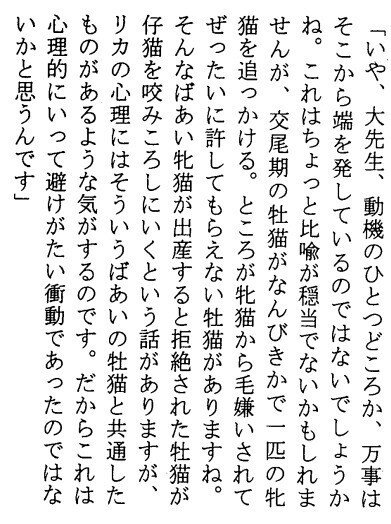 「いや、大先生、動機のひとつどころか、万事は
そこから端を発しているのではないでしょうか
ね。これはちょっと比喩が穏当でないかもしれま
せんが、交尾期の牡猫がなんびきかで一匹の牝
猫を追っかける。ところが牝猫から毛嫌いされて
ぜったいに許してもらえない牡猫がありますね。
そんなばあい牝猫が出産すると拒絶された牡猫が
仔猫を咬みころしにいくという話がありますが、
リカの心理にはそういうばあいの牡猫と共通した
ものがあるような気がするのです。だからこれは
心理的にいって避けがたい衝動であったのではな
いかと思うんです」